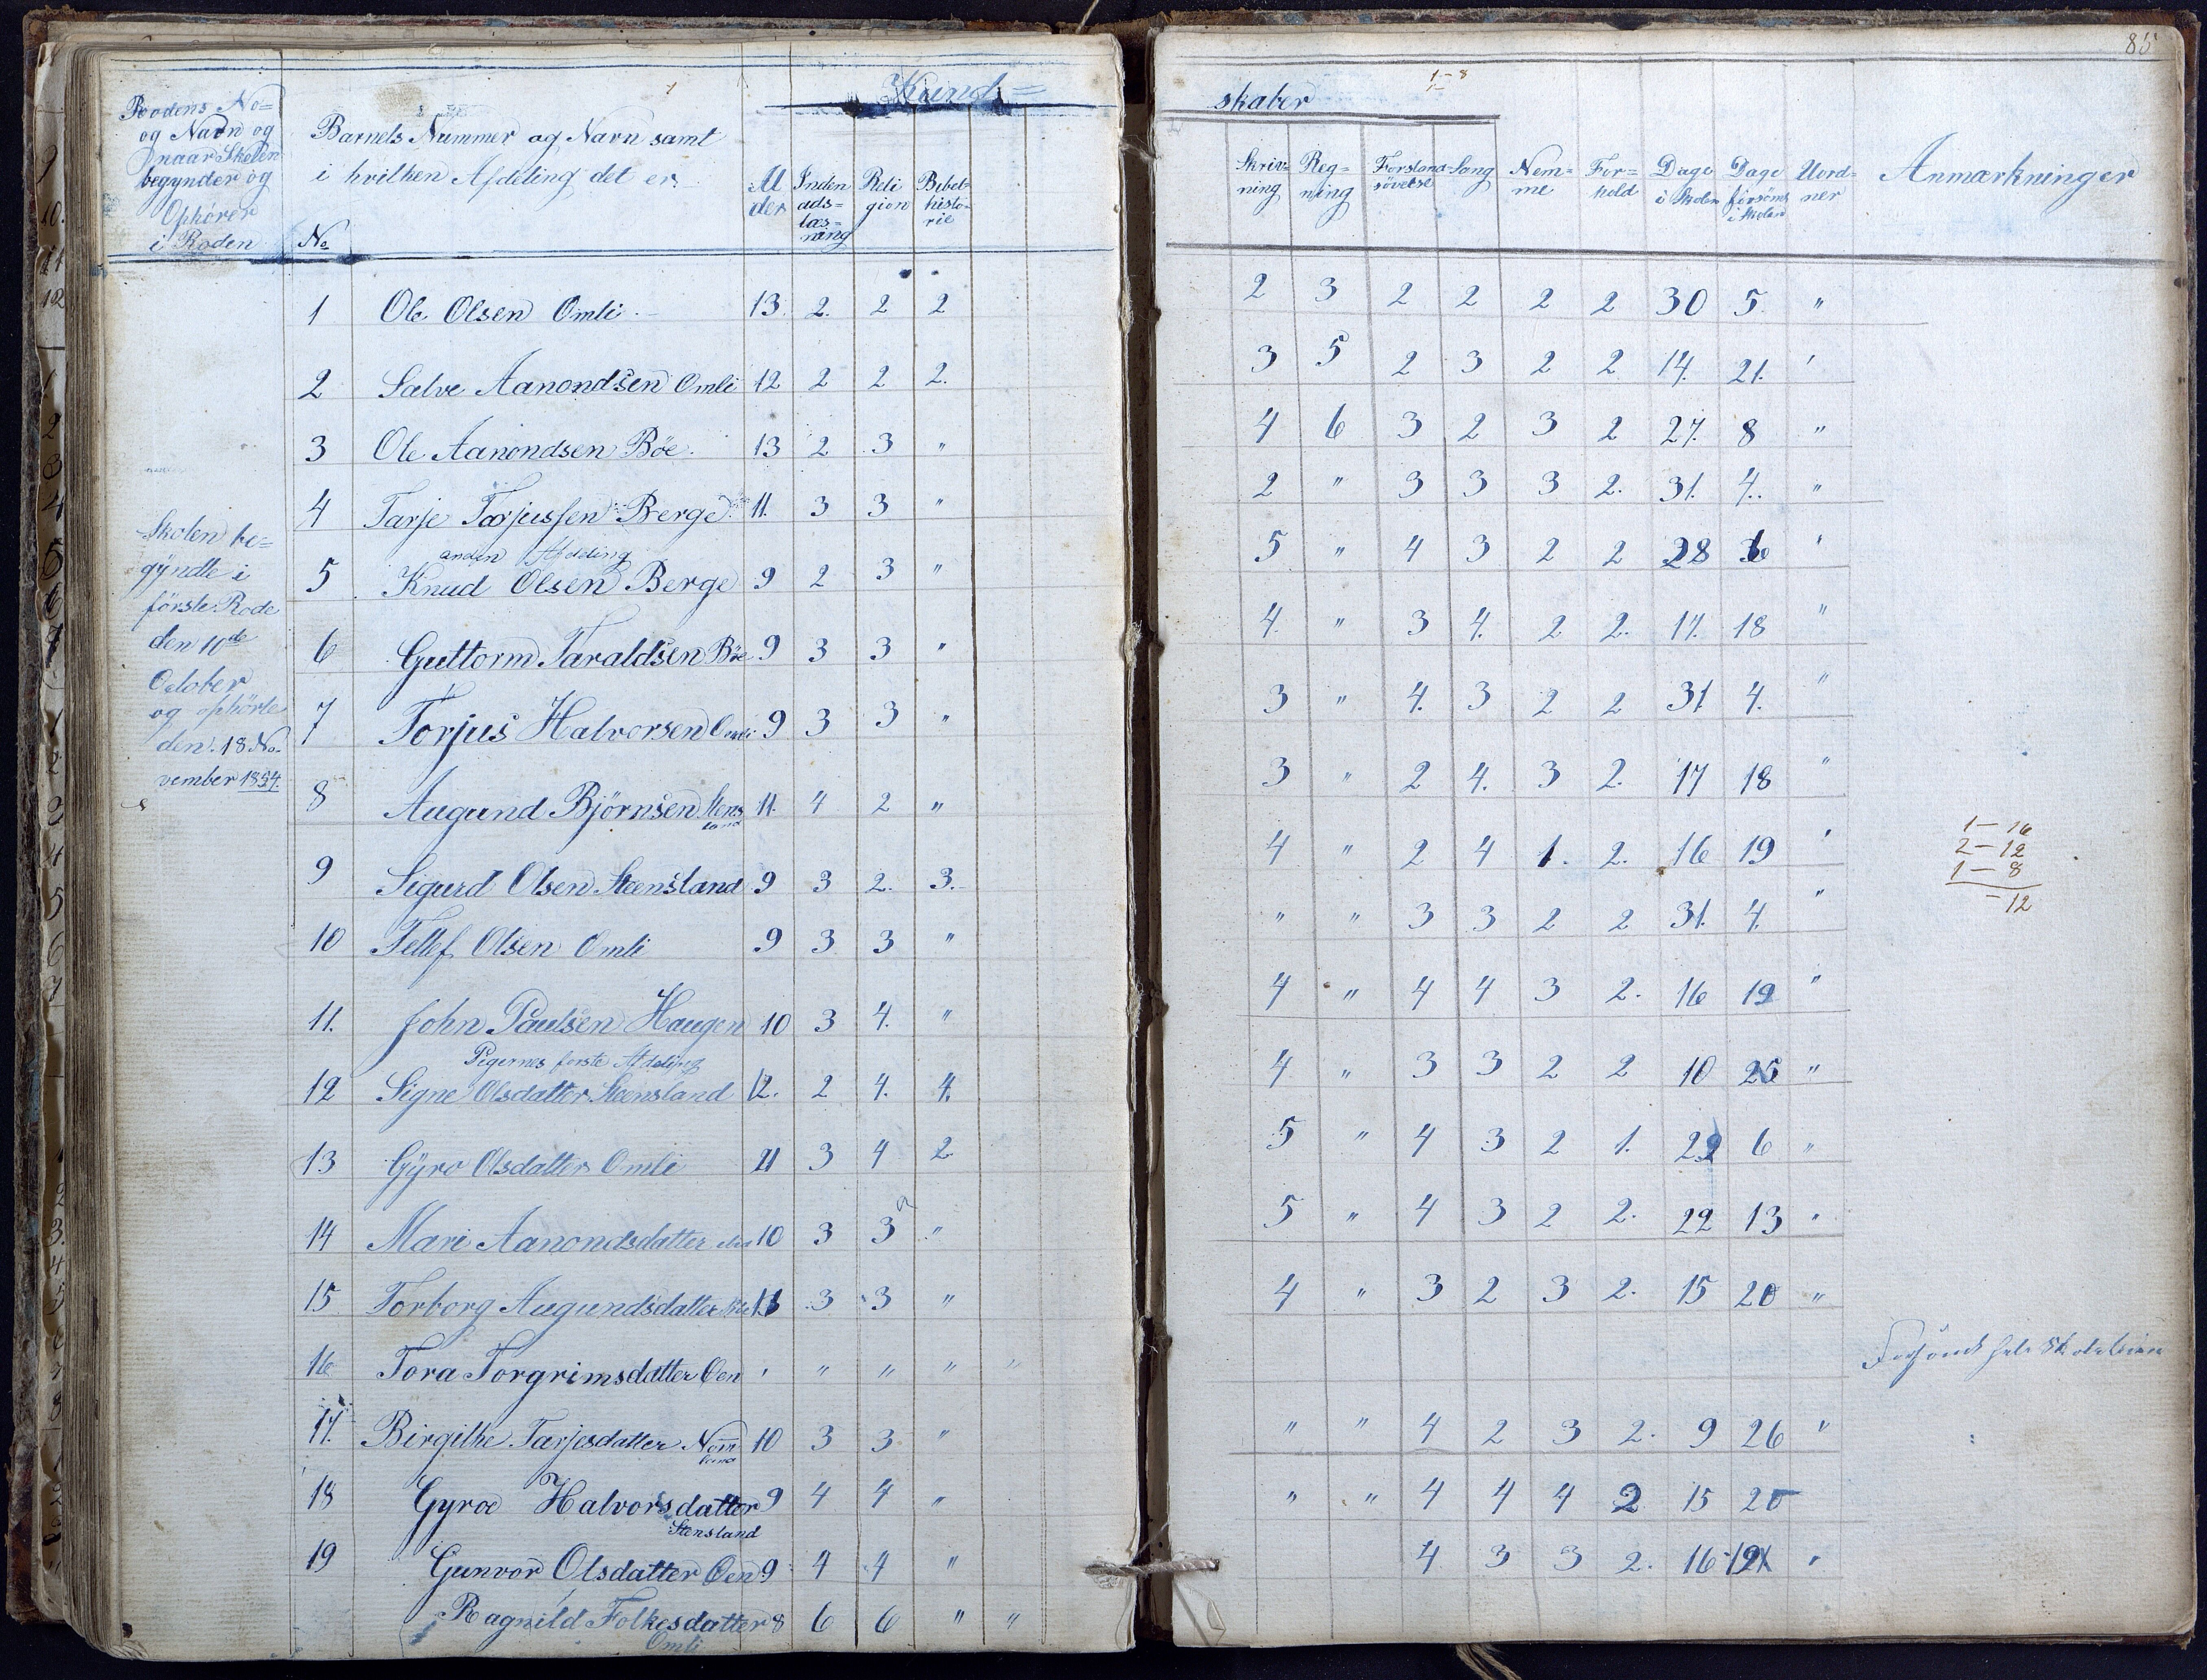 85
Kund=
skaber
1-8
Rodens No=
og Navn og
naar Skolen
begynder og
Ophörer
i Roden
Barnets Nummer og Navn samt
i hvilken Afdeling det er.
No
Al
der
Inden
ads=
læs=
ning
Reli
gion
Bibel=
histo=
rie
Skriv=
ning
Reg=
ning
Forstand
sövelse
Sang
Nem=
me
For=
hold
Dage
i Skolen
Dage
forsömt
i Skolen
Uord=
ner
Anmærkninger
Skolen be=
gyndte i
förste Rode
den 10de
October
og ophörte
den 18 No
vember 1854.
1 Ole Olsen Omli 13. 2. 2 2 2 3 2 2 2 2 30 5. "
2 Salve Aanondsen Omli 12 2 2 2. 3 5 2 3 2 2 14. 21. '
3 Ole Aanondsen Böe. 13 2 3 " 4 6 3 2 3 2 27. 8 "
4 Tarje Tarjussen Berge 11. 3 3 " 2 " 3 3 3 2. 31. 4. "
anden Afdeling
5 Knud Olsen Berge 9 2 3 " 5 " 4 3 2 2 28 '
6 Guttorm Taraldsen Böe 9 3 3 " 4. " 3 4. 2 2. 17. 18 "
7 Torjus Halvorsen Omli 9 3 3 " 3 " 4. 3 2 2 31 4. "
8 Augund Björnsen Stens
land 11. 4 2 " 3 " 2 4. 3 2. 17 18 "
9 Sigurd Olsen Steensland 9 3 2. 3. 4 " 2 4 1. 2. 16 19 '
1 - 16
2 - 12
1 - 8
- 12
10 Tellef Olsen Omli 9 3 3 " " " 3 3 2 2 31. 4. "
11. John Paulsen Haugen 10 3 4. " 4 " 4 4 3 2. 16 19 "
Pigernes förste Afdeling
12 Signe Olsdatter Steensland 12. 2 4. 4. 4 " 3 3 2 2 10 25 "
13 Gÿro Olsdatter Omli 11 3 4 2 5 " 4 3 2 1. 29 6 "
14 Mari Aanondsdatter 10 3 3 " 5 " 4 3 2 2. 22 13 "
15 Torborg Augundsdatter 3 3 " 4 " 3 2 3 2. 15 20 "
16 Tora Torgrimsdatter Oen ' " " " " Forsömt hele Skoletiden
17. Birgithe Tarjesdatter Nom
land 10 3 3 " " " 4 2 3 2. 9 26 "
18 Gyroe Halvorsdatter
Stensland 9 4 4 " " " 4 4 4 2 15 20
19 Gunvor Olsdatter Oen 9 4 4 " 4 3 3 2. 16 19 "
Ragnild Folkesdatter 8 6 6 " "
Omli